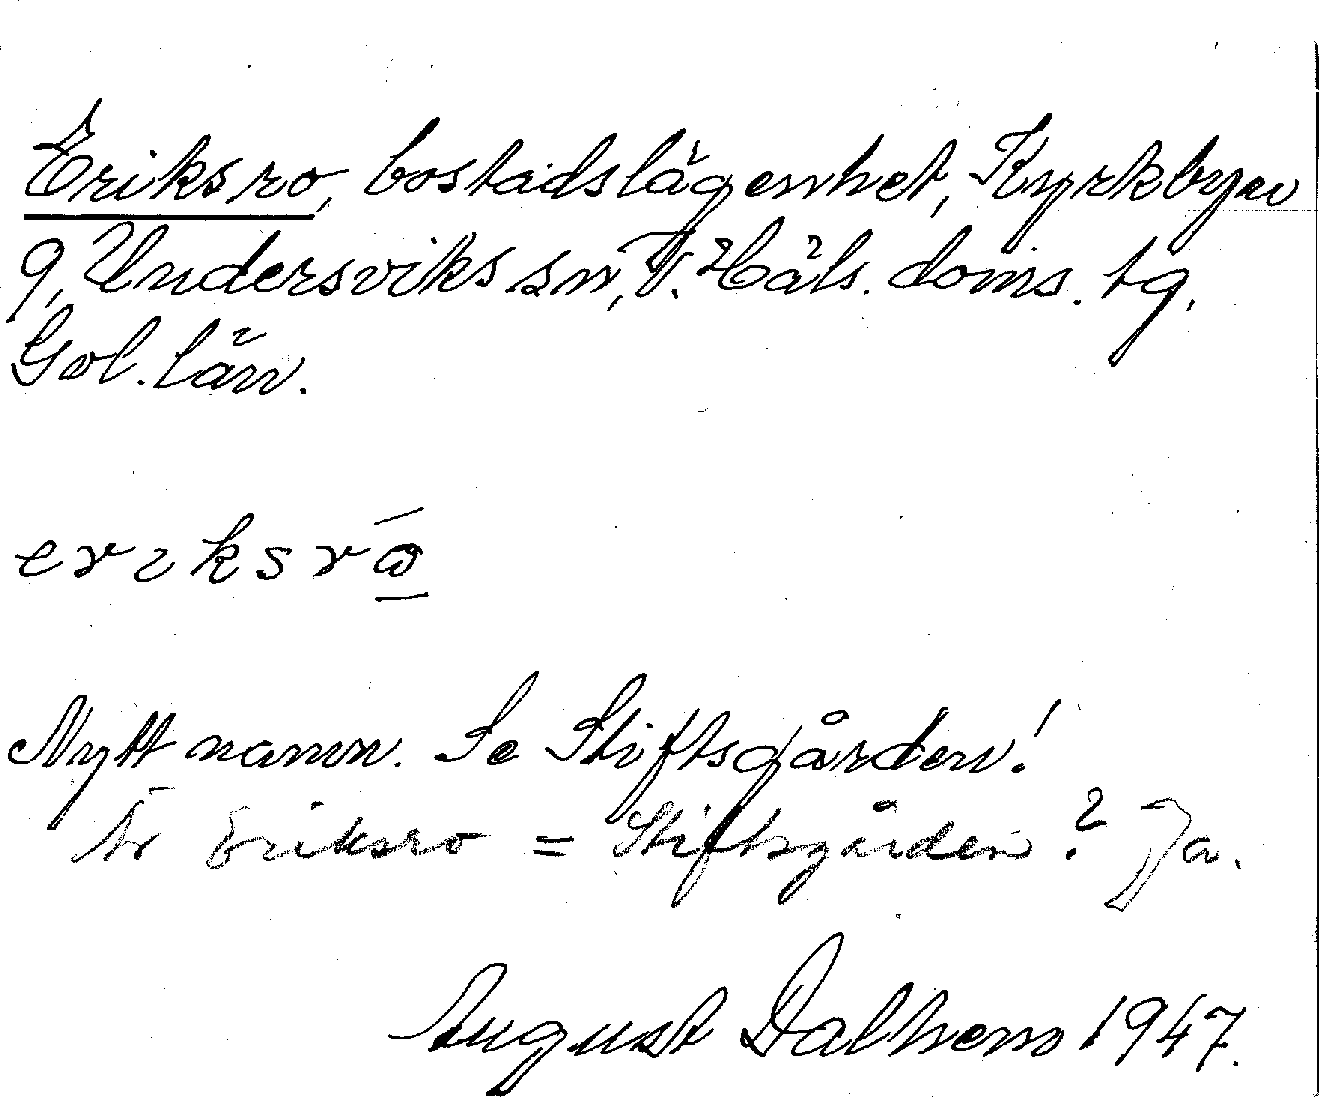 Eriksro, bostadslägenhet, Kyrkbyn
9, Undersviks sn, V. Häls. doms. tg.
Gvl. län.
eriksrώ̲
Nytt namn. Se Stiftsgården!
Är Eriksro = Stiftsgården? Ja.
August Dalhem 1947.